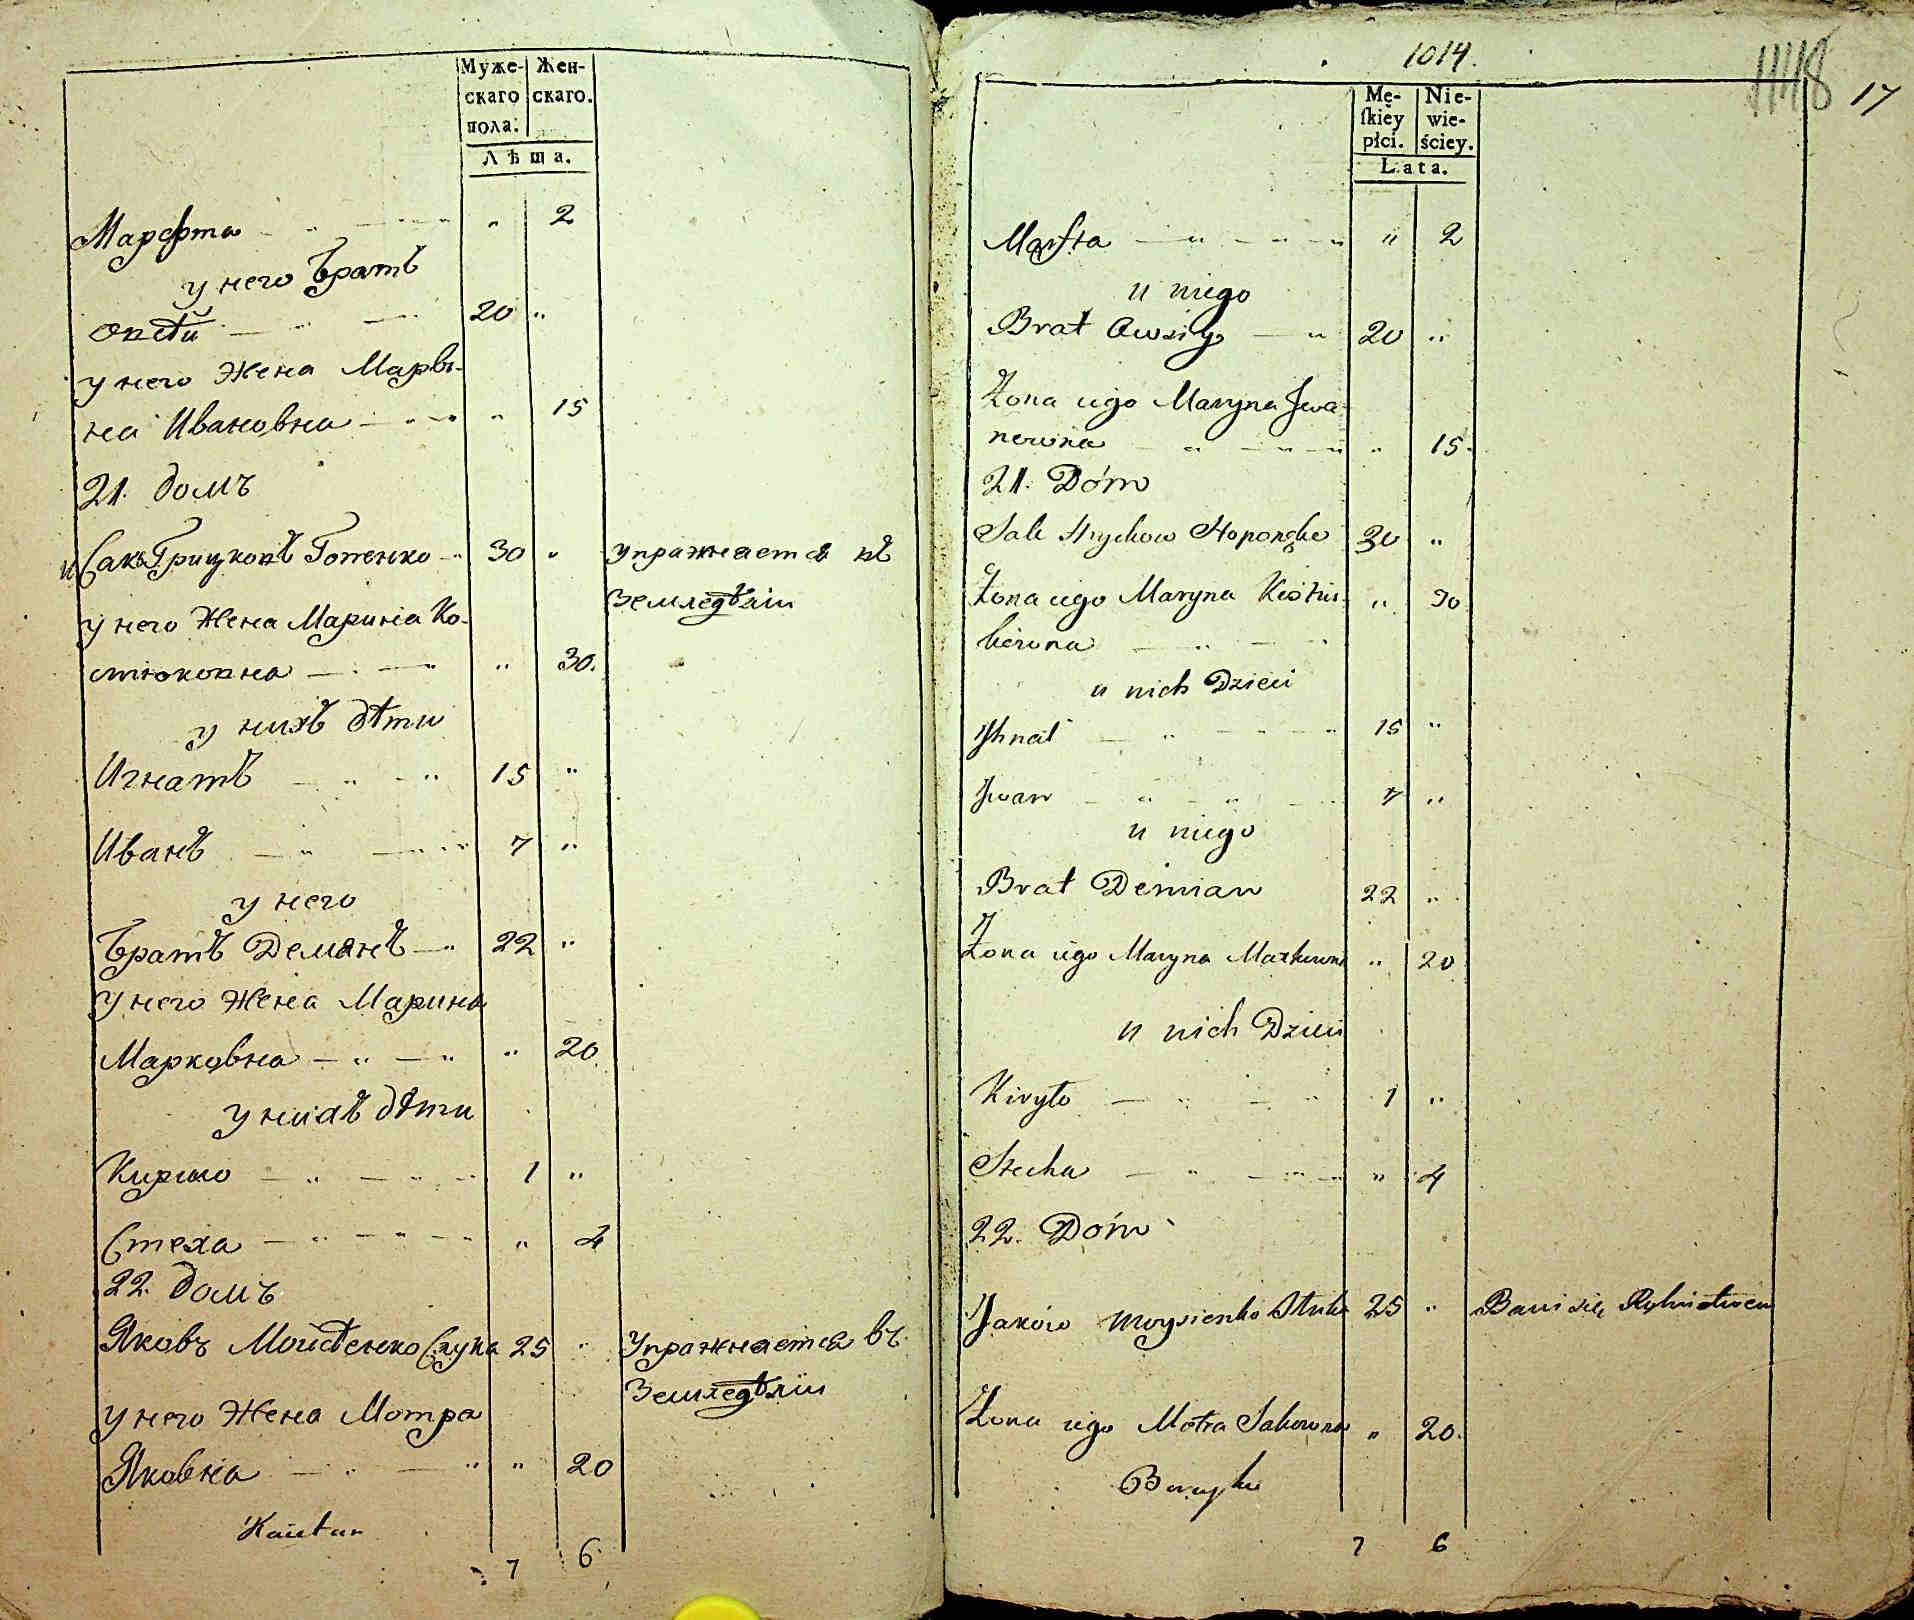 Муже- Жен-
скаго скаго.
пола.
Лѣта.
Марфта " 2
у него братъ
Овсѣй 20 "
у него жена Мары-
на Ивановна " 15
21. домъ
Сакъ Грицковъ 30 " упражнается въ
земледѣліи
у него жена Марина Ко-
стюковна " 30.
у нихъ дѣти
Игнатъ 15 "
Иванъ 7 "
у него
братъ Демянъ 22 "
у него жена Марина
Марковна " 20
у нихъ дѣти
Кирило 1 "
Стеха " 4
22. домъ
Яковъ Мойсѣенко 25 " Упражнается въ
земледѣліи
у него жена Мотра
Яковна " 20
7 6
1014.
17
Mę- Nie-
ſkiey wie-
płci. ściey.
Lata.
Marfta " 2
u niego
Brat Owsiy 20 "
Zona iego Maryna Jwa-
nowna " 15.
21. Dóm
Sak Hryckow 30 "
Zona iego Maryna Kostiu- " 30
kowna
u nich Dzieci
Jhnat 15 "
Jwan 7 "
u niego
Brat Demian 22 "
Zona iego Maryna Markowna " 20
u nich Dzieci
Kiryło 1 "
Stecha " 4
22. Dóm
Jaków Moysienko 25 " Bawi się Rolnictwem
Zona iego Motra Jakowna " 20.
7 6